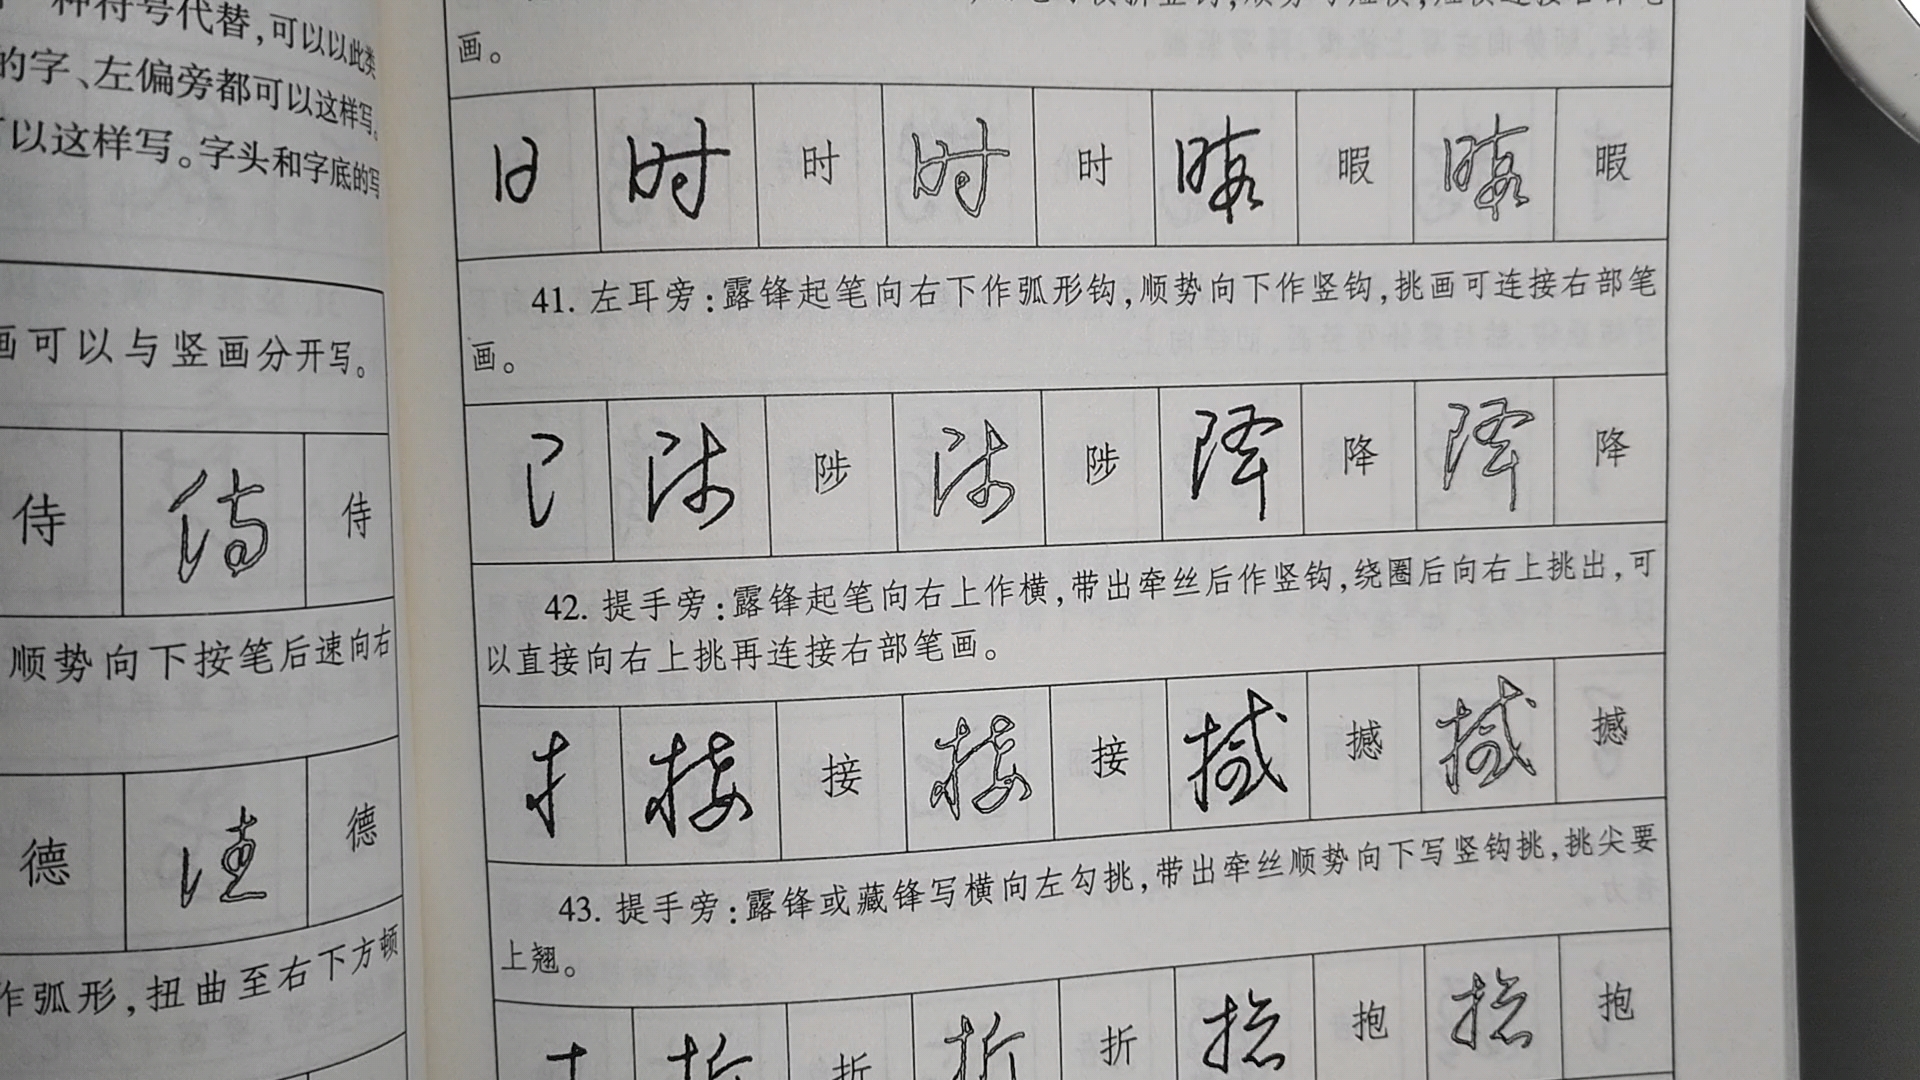 种符号代替,可以以此类
的字、左偏旁都可以这样写。
可以这样写。字头和字底的写
画可以与竖画分开写。
侍 侍 侍
顺势向下按笔后速向右
德 德 德
作弧形,扭曲至右下方顿
画。
日 时 时 时 时 暇 暇 暇 暇
41. 左耳旁:露锋起笔向右下作弧形钩,顺势向下作竖钩,挑画可连接右部笔
画。
阝 陟 陟 陟 陟 降 降 降 降
42. 提手旁:露锋起笔向右上作横,带出牵丝后作竖钩,绕圈后向右上挑出,可
以直接向右上挑再连接右部笔画。
扌 接 接 接 接 撼 撼 撼 撼
43. 提手旁:露锋或藏锋写横向左勾挑,带出牵丝顺势向下写竖钩挑,挑尖要
上翘。
扌 折 折 折 折 抱 抱 抱 抱